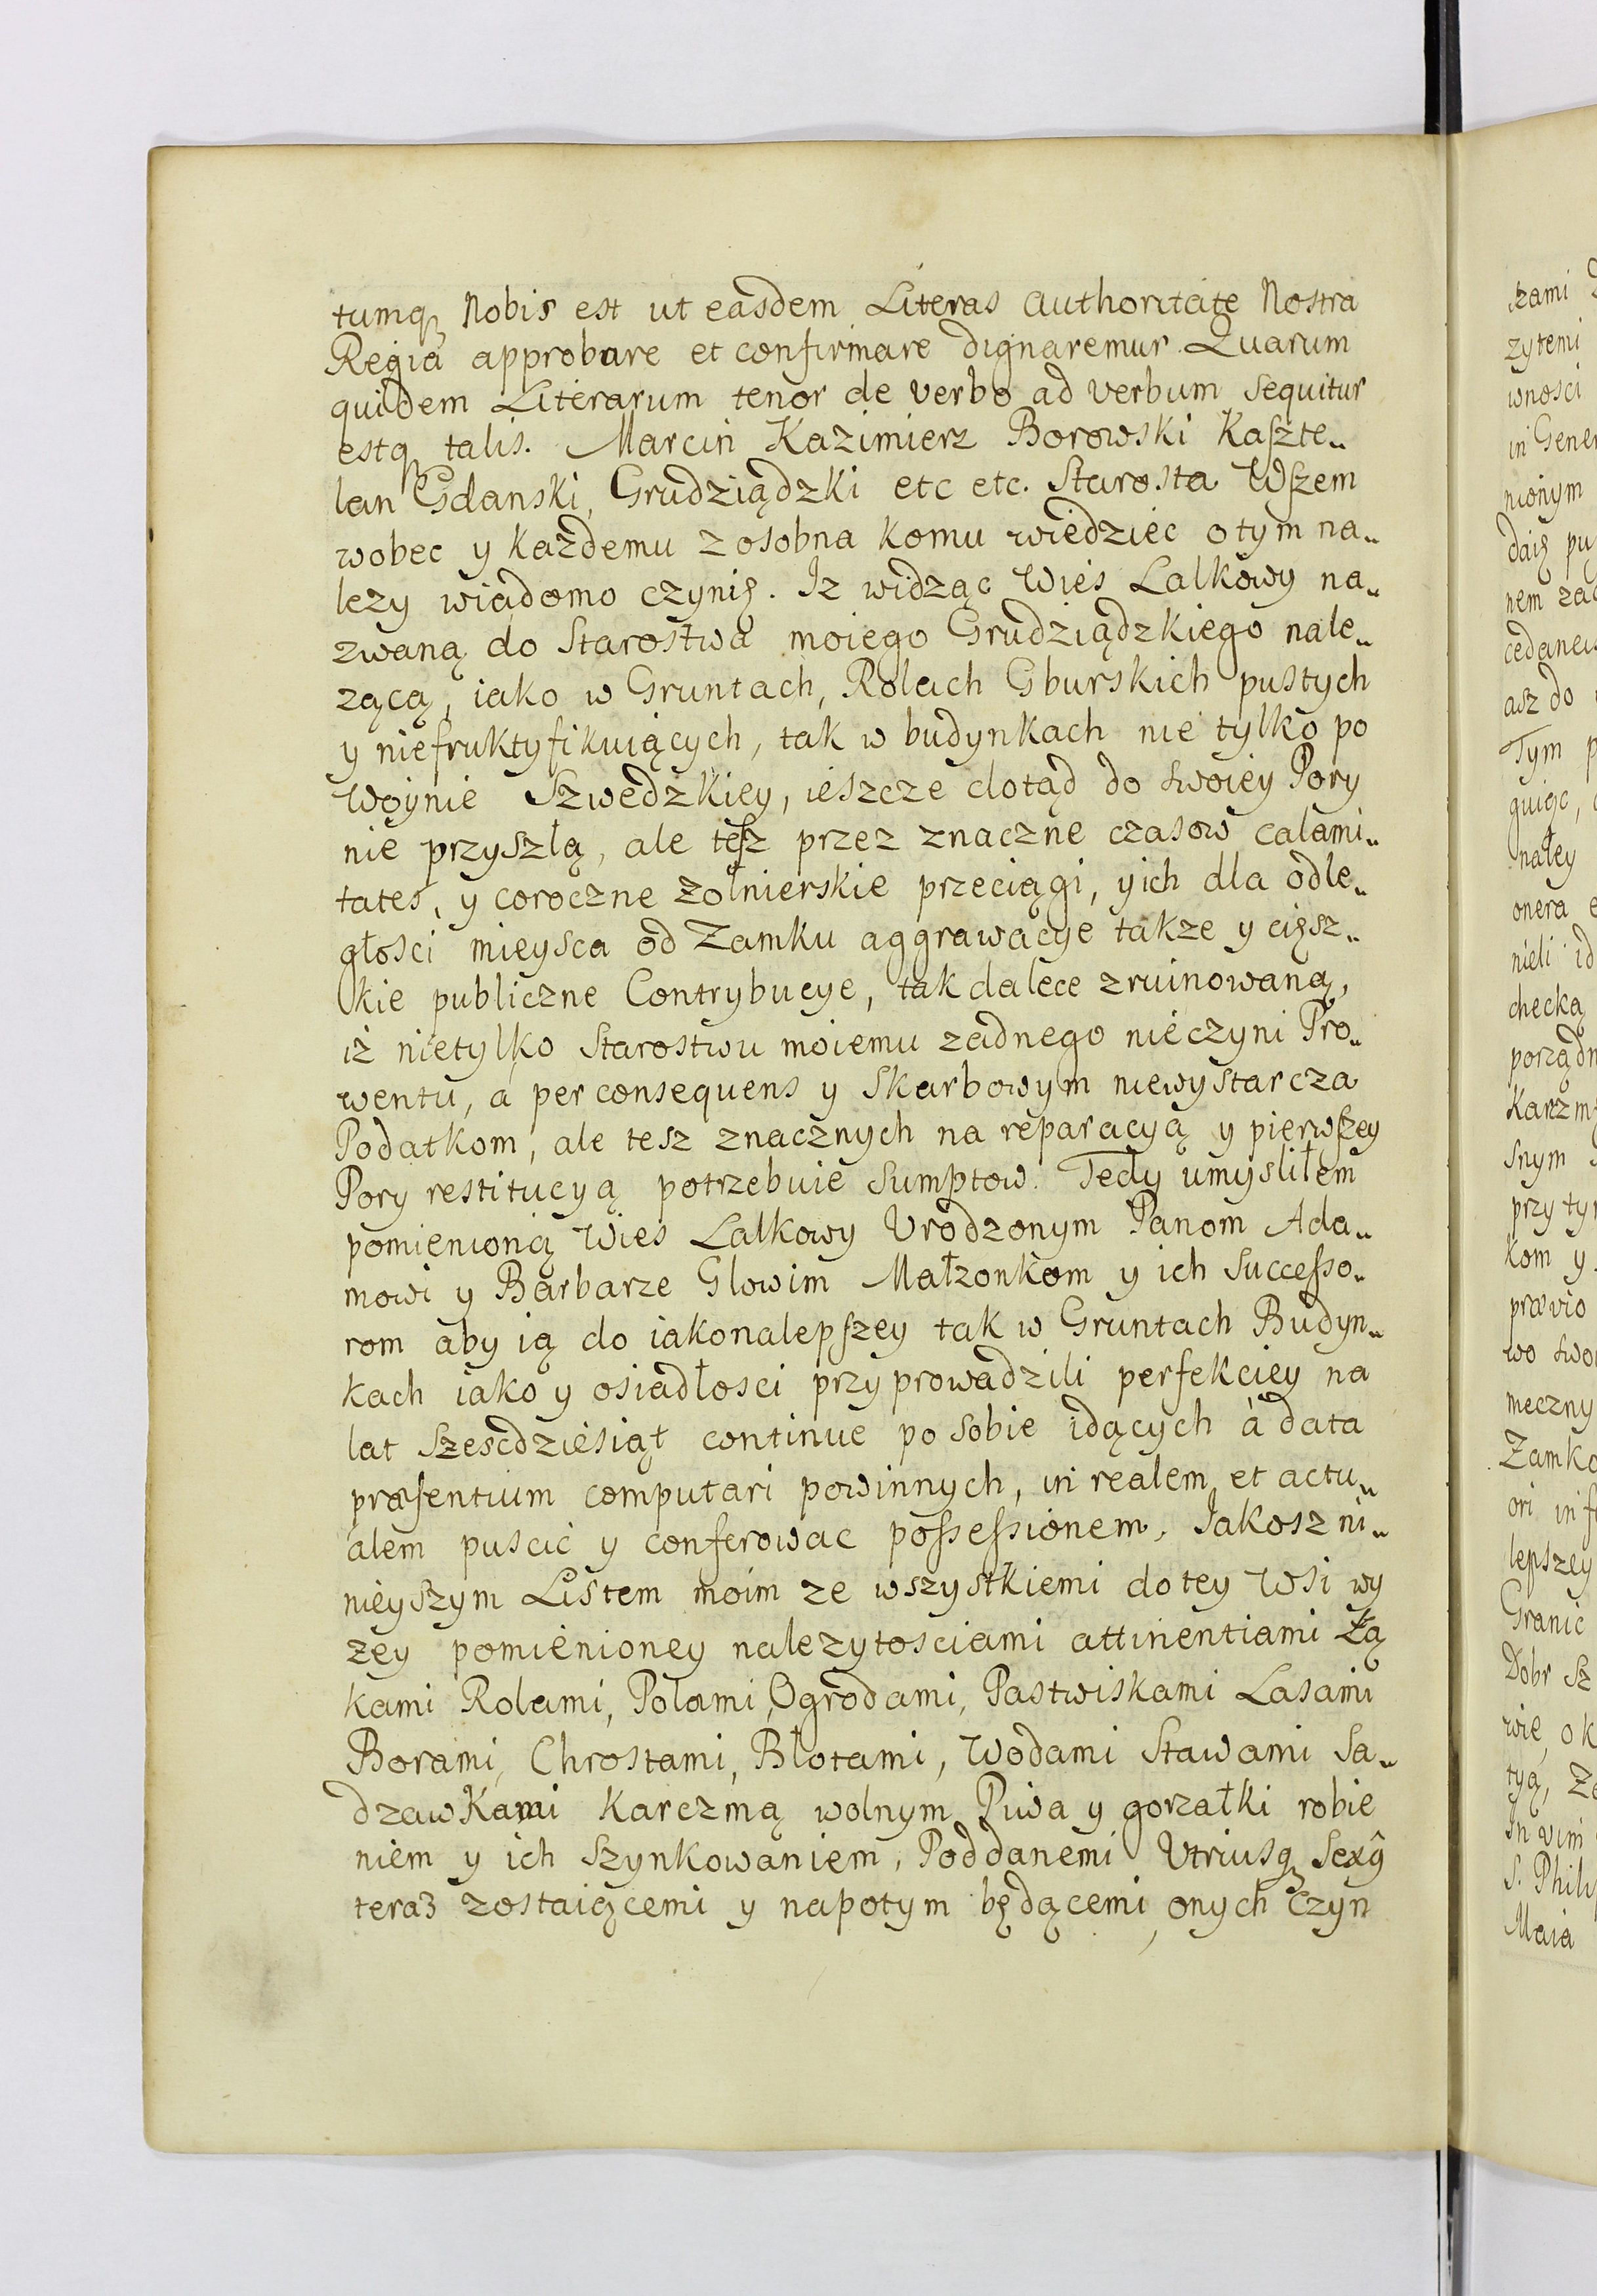 tumq₃ Nobis est ut easdem Literas Authoritate Nostra
Regia approbare et confirmare dignaremur. Quarum
quidem Literarum tenor de verbo ad verbum sequitur
estq₃ talis. Marcin Kazimierz Borowski Kaszte„
lan Gdanski, Grudziądzki etc etc. Starosta Wszem
wobec y każdemu z osobna komu wiedziec o tym na„
lezy wiadomo czynię. Iz widząc Wieś Lalkowy na„
zwaną do Starostwa moiego Grudziądzkiego nale„
zącą, iako w Gruntach, Rolach Gburskich pustych
y niefruktyfikuiących, tak w budynkach nie tylko po
Woynie Szwedzkiey, ieszcze dotąd do swoiey Pory
nie przyszłą, ale tesz przez znaczne czasow calami„
tates, y coroczne zołnierskie przeciągi, y ich dla odle„
głosci mieysca od Zamku aggrawacye takze y cięsz„
kie publiczne Contrybucye, tak dalece zruinowaną,
iż nietylko Starostwu moiemu zadnego nieczyni Pro„
wentu, a per consequens y Skarbowym niewystarcza
Podatkom, ale tesz znacznych na reparacyą y pierwszey
Pory restitucyą potrzebuie sumptow. Tedy umyśliłem
pomienioną Wies Lalkowy Urodzonym Panom Ada„
mowi y Barbarze Glowim Małzonkom y ich Successo„
rom aby ią do iakonalepszey tak w Gruntach Budyn„
kach iako y osiadłosci przyprowadzili perfekciey na
lat szescdziesiąt continue po sobie idących à data
præsentium computari powinnych, in realem et actu„
alem puscić y conferowac possessionem, Jakosz ni„
nieyszym Listem moim ze wszystkiemi do tey Wsi wy
zey pomienioney nalezytosciami attinentiami Łą
kami Rolami, Polami, Ogrodami, Pastwiskami Lasami
Borami, Chrostami, Błotami, Wodami Stawami Sa„
dzawkami Karczmą wolnym Piwa y gorzałki robie
niem y ich szynkowaniem, Poddanemi Utriusq₃ Sexû
teraz zostaiącemi y napotym będącemi, onych czyn
kami
zytemi
wnosci
in Gener
nionym
daię pu
nem zac
cedaneu
asz do
Tym p
guiąc,
nałey
onera e
nieli id
checką
porządn
Karzm
snym
przy ty
kom y
prævio
wo swo
meczny
Zamko
ori in f
lepszey
Granic
Dobr sz
wie, ok
tyą, Za
In vim
S. Phili
Maia